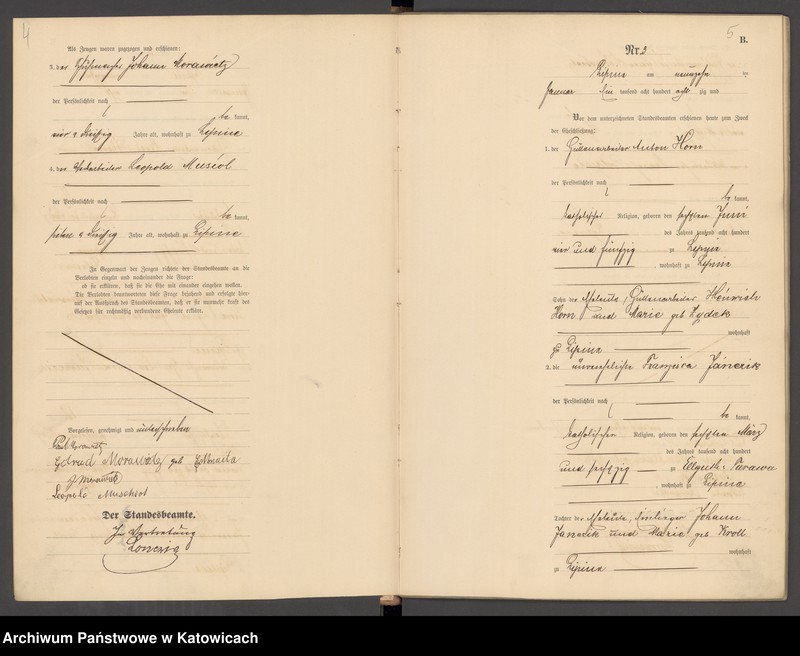 4
Als Zeugen waren zugezogen und erschienen:
3. der Johann Morawietz
der Persönlichkeit nach
be kannt,
vier u dreißig Jahre alt, wohnhaft zu Lipine
4. der Leopold Musiol
der Persönlichkeit nach
be kannt,
u dreißig Jahre alt, wohnhaft zu Lipine
In Gegenwart der Zeugen richtete der Standesbeamte an die
Verlobten einzeln und nacheinander die Frage:
ob sie erklären, daß sie die Ehe mit einander eingehen wollen.
Die Verlobten beantworteten diese Frage bejahend und erfolgte hier-
auf der Ausspruch des Standesbeamten, daß er sie nunmehr kraft des
Gesetzes für rechtmäßig verbundene Eheleute erkläre.
Vorgelesen, genehmigt und unterschrieben
Paul
Morawietz geb
J. Morawietz
Leopold Muschiol
Der Standesbeamte.
In Vertretung
5
B.
Nr. 3
Lipine am neunzehn ten
Januar ein tausend acht hundert acht zig und
Vor dem unterzeichneten Standesbeamten erschienen heute zum Zweck
der Eheschließung:
1. der Hüttenarbeiter Anton Horn
der Persönlichkeit nach
be kannt,
katholischer Religion, geboren den sechsten Juni
des Jahres tausend acht hundert
vier und fünfzig zu Lipine
, wohnhaft zu Lipine
Sohn der Eheleute, Hüttenarbeiter Heinrich
Horn und Marie geb Zydek
wohnhaft
zu Lipine
2. die unverehelichte Franziska Janczik
der Persönlichkeit nach
be kannt,
katholischer Religion, geboren den sechsten März
des Jahres tausend acht hundert
und sechzig zu Ellguth-Turawa
, wohnhaft zu Lipine
Tochter der Eheleute, Johann
Janczik und Marie geb Kroll
wohnhaft
zu Lipine
Archiwum Państwowe w Katowicach